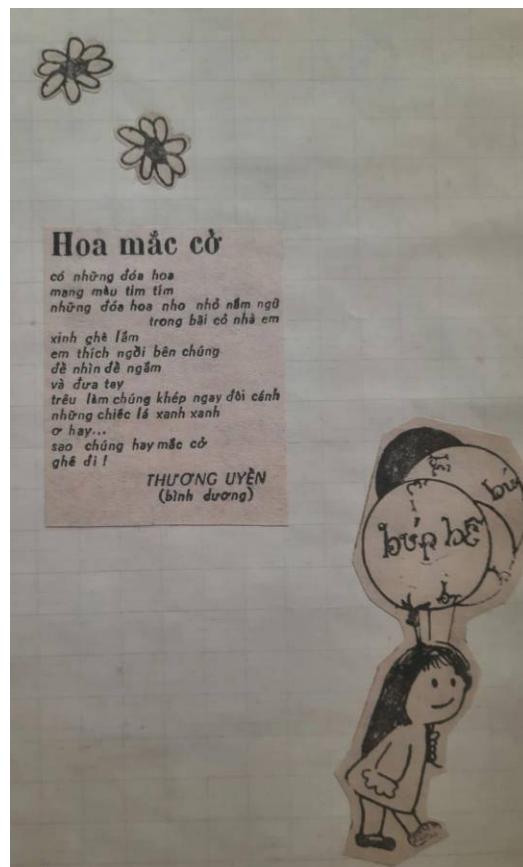 Hoa mắc cở
có những đóa hoa
mang màu tim tím
những đóa hoa nho nhỏ nằm ngũ
trong bãi cỏ nhà em
xinh ghê lắm
em thích ngồi bên chúng
để nhìn để ngắm
và đưa tay
trêu làm chúng khép ngay đôi cánh
những chiếc lá xanh xanh
ơ hay...
sao chúng hay mắc cở
ghê đi !
THƯƠNG UYÊN
(bình dương)
búp bê